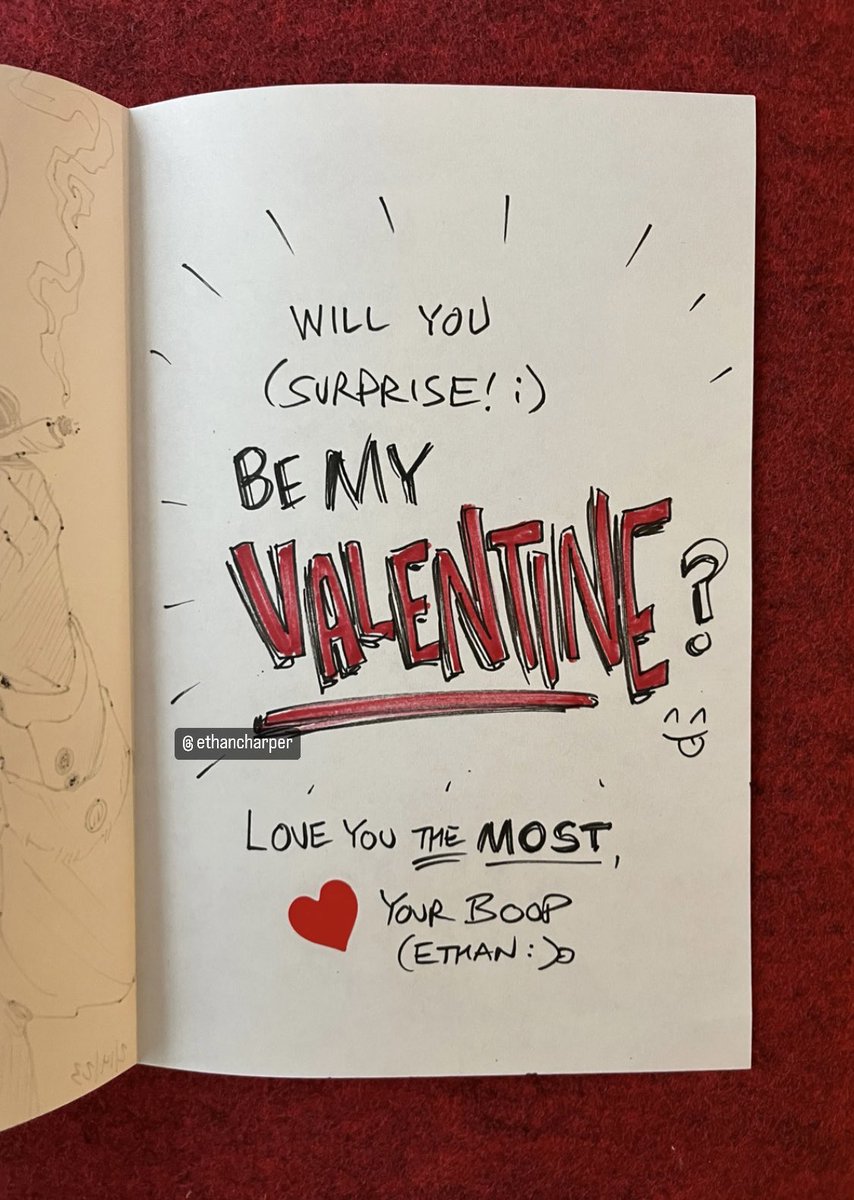 WILL YOU
(SURPRISE! ;)
BE MY
VALENTINE?
@ethancharper
LOVE YOU THE MOST,
YOUR BOOP
(ETHAN:)
2/14/23